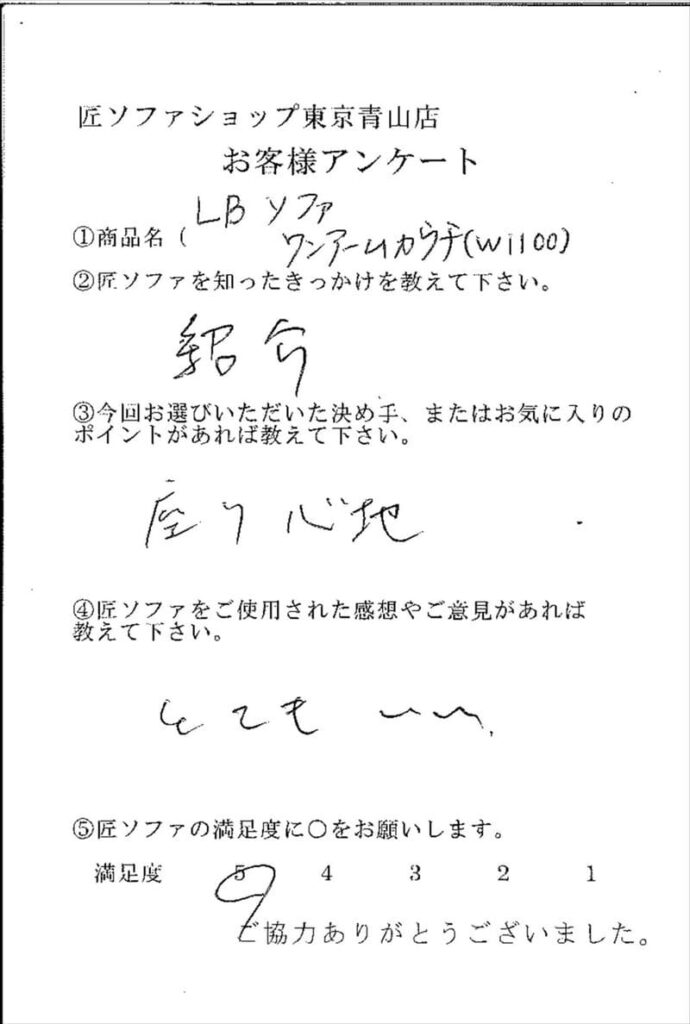 匠ソファショップ東京青山店
お客様アンケート
①商品名（ LBソファ
ワンアームカウチ(W1100)
②匠ソファを知ったきっかけを教えて下さい。
紹介
③今回お選びいただいた決め手、またはお気に入りの
ポイントがあれば教えて下さい。
座り心地
④匠ソファをご使用された感想やご意見があれば
教えて下さい。
とても いい。
⑤匠ソファの満足度に○をお願いします。
満足度 5 4 3 2 1
ご協力ありがとうございました。